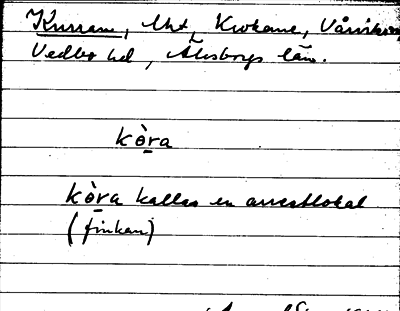 Kurran, Ukt, Krokane, Vårviks
Vedbo hd, Älvsborgs län.
kò̱ra
kò̱ra kallas en arrestlokal
(finkan)